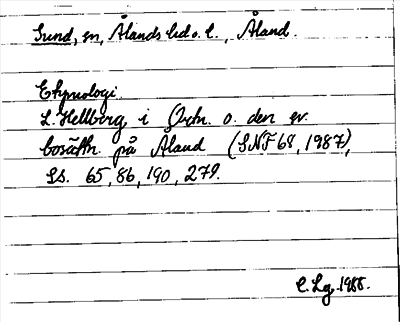 Sund, sn, Ålands hd o. l., Åland.
Etymologi
L. Hellberg i Ortn. o. den sv.
bosättn. på Åland (SNF 68, 1987),
ss. 65, 86, 190, 279.
C. Lg. 1988.